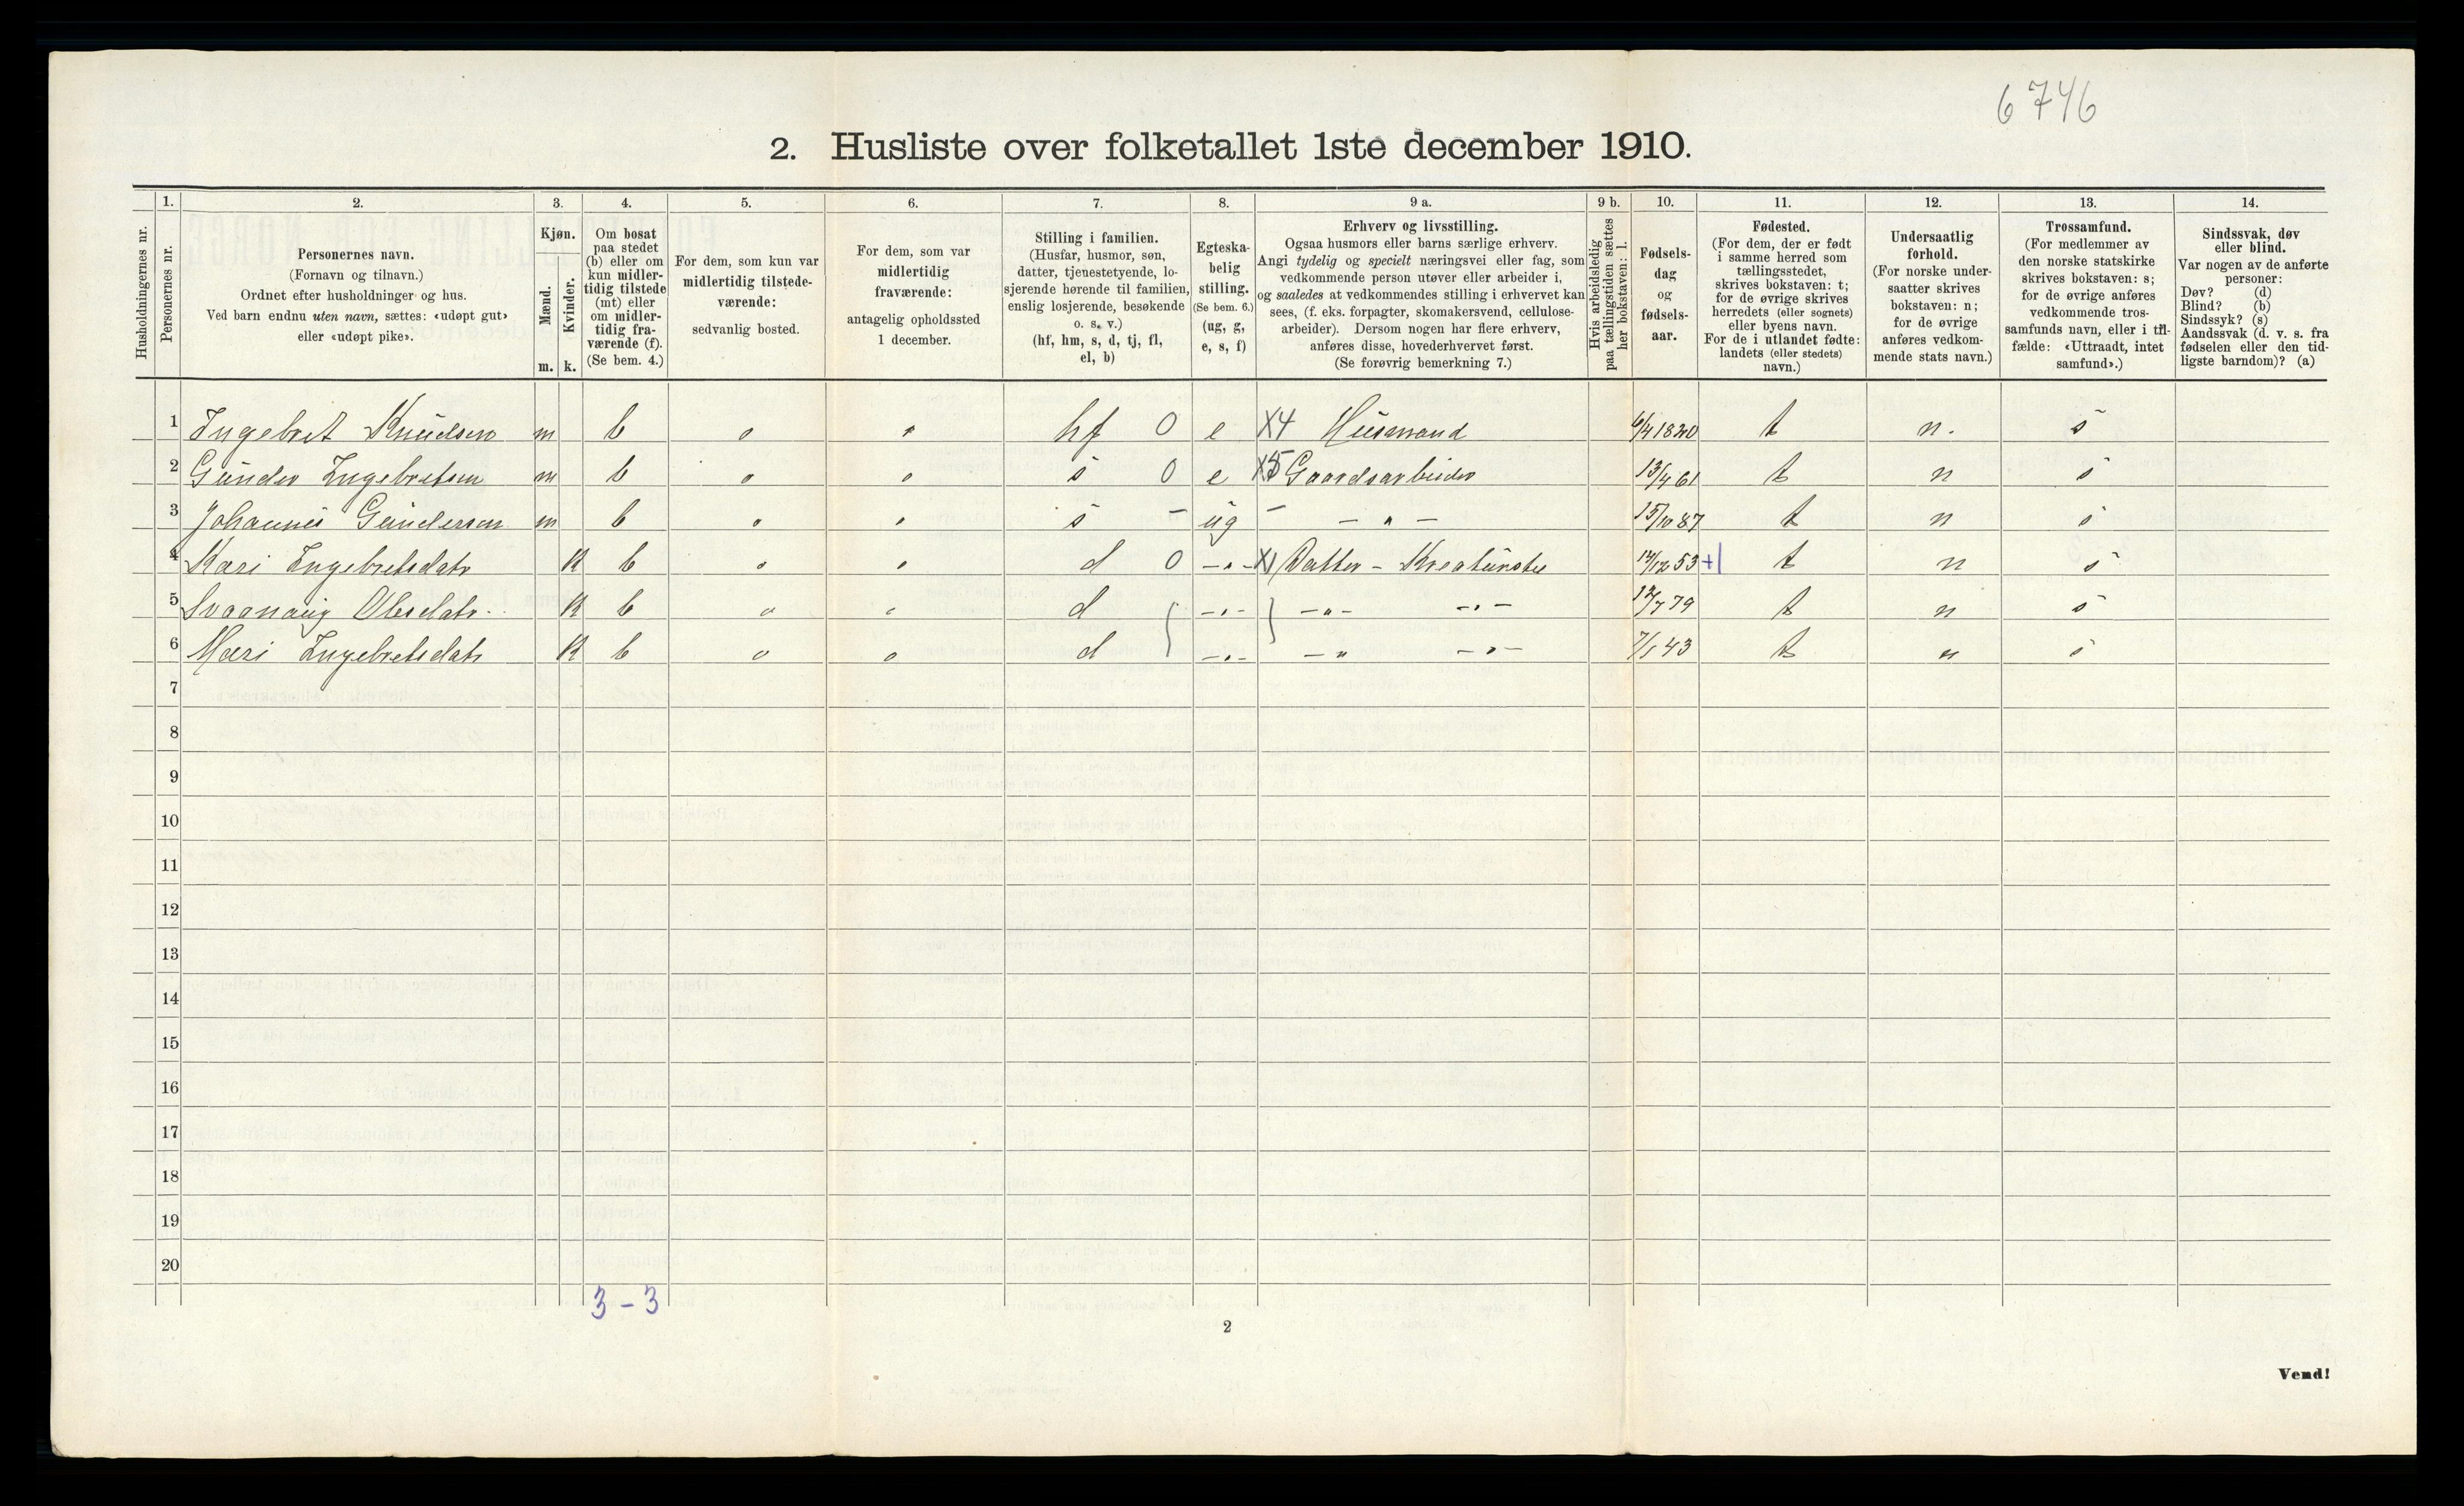 6746
2. Husliste over folketallet 1ste december 1910.
Husholdningernes nr.
1. Personernes nr.
2. Personernes navn.
(Fornavn og tilnavn.)
Ordnet efter husholdninger og hus.
Ved barn endnu uten navn, sættes: «udøpt gut»
eller «udøpt pike».
3. Kjøn.
Mænd. Kvinder.
m. k.
4. Om bosat
paa stedet
(b) eller om
kun midler-
tidig tilstede
(mt) eller
om midler-
tidig fra-
værende (f).
(Se bem. 4.)
5. For dem, som kun var
midlertidig tilstede-
værende:
sedvanlig bosted.
6. For dem, som var
midlertidig
fraværende:
antagelig opholdssted
1 december.
7. Stilling i familien.
(Husfar, husmor, søn,
datter, tjenestetyende, lo-
sjerende hørende til familien,
enslig losjerende, besøkende
o. s. v.)
(hf, hm, s, d, tj, fl,
el, b)
8. Egteska-
belig
stilling.
(Se bem. 6.)
(ug, g,
e, s, f)
9 a. Erhverv og livsstilling.
Ogsaa husmors eller barns særlige erhverv.
Angi tydelig og specielt næringsvei eller fag, som
vedkommende person utøver eller arbeider i,
og saaledes at vedkommendes stilling i erhvervet kan
sees, (f. eks. forpagter, skomakersvend, cellulose-
arbeider). Dersom nogen har flere erhverv,
anføres disse, hovederhvervet først.
(Se forøvrig bemerkning 7.)
9 b. Hvis arbeidsledig
paa tællingstiden sættes
her bokstaven: l.
10. Fødsels-
dag
og
fødsels-
aar.
11. Fødested.
(For dem, der er født
i samme herred som
tællingsstedet,
skrives bokstaven: t;
for de øvrige skrives
herredets (eller sognets)
eller byens navn.
For de i utlandet fødte:
landets (eller stedets)
navn.)
12. Undersaatlig
forhold.
(For norske under-
saatter skrives
bokstaven: n;
for de øvrige
anføres vedkom-
mende stats navn.)
13. Trossamfund.
(For medlemmer av
den norske statskirke
skrives bokstaven: s;
for de øvrige anføres
vedkommende tros-
samfunds navn, eller i til-
fælde: «Uttraadt, intet
samfund».)
14. Sindssvak, døv
eller blind.
Var nogen av de anførte
personer:
Døv? (d)
Blind? (b)
Sindssyk? (s)
Aandssvak (d. v. s. fra
fødselen eller den tid-
ligste barndom)? (a)
1 Ingebret Knudsen m b o o hf 0 e X4 Husmand 6/4 1820 t n. s
2 Gunder Ingebretsen m b o o s 0 e X5 Gaardsarbeider 13/4 61 t n s
3 Johannes Gundersen m b o o s - ug - - " - 15/10 87 t n s
4 Kari Ingebretsdatr K b o o d 0 - " - X1 Datter - Kreaturstel 14/12 53 +1 t n s
5 Olsdatr K b o o d - " - - " - - " - 12/7 79 t n s
6 Mari Ingebretsdatr K b o o d - " - - " - " - 7/1 43 t n s
7
8
9
10
11
12
13
14
15
16
17
18
19
20
3 - 3
2
Vend!